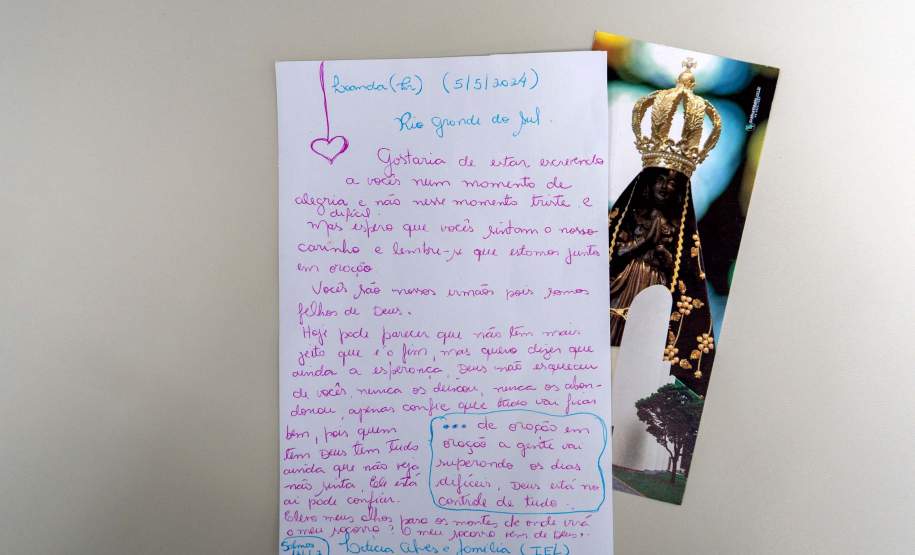 Loanda (Pr) (5/5/2024)
Rio grande do Sul.
Gostaria de estar escrevendo
a vocês num momento de
alegria e não nesse momento triste e
difícil.
Mas espero que vocês sintam o nosso
carinho e lembre-se que estamos juntos
em oração
Vocês são nossos irmãos pois somos
filhos de Deus.
Hoje pode parecer que não têm mais
jeito que é o fim, mas quero dizer que
ainda a esperança, Deus não esqueceu
de vocês, nunca os deixou, nunca os aban-
donou, apenas confie que tudo vai ficar
bem, pois quem
tem Deus tem tudo
ainda que não veja
não sinta. Ele está
ai pode confiar.
... de oração em
oração a gente vai
superando os dias
difíceis, Deus está no
controle de tudo.
Elevo meus olhos para os montes, de onde virá
o meu socorro? O meu socorro vem de Deus.
Salmos
Letícia Alves e família (IEL)